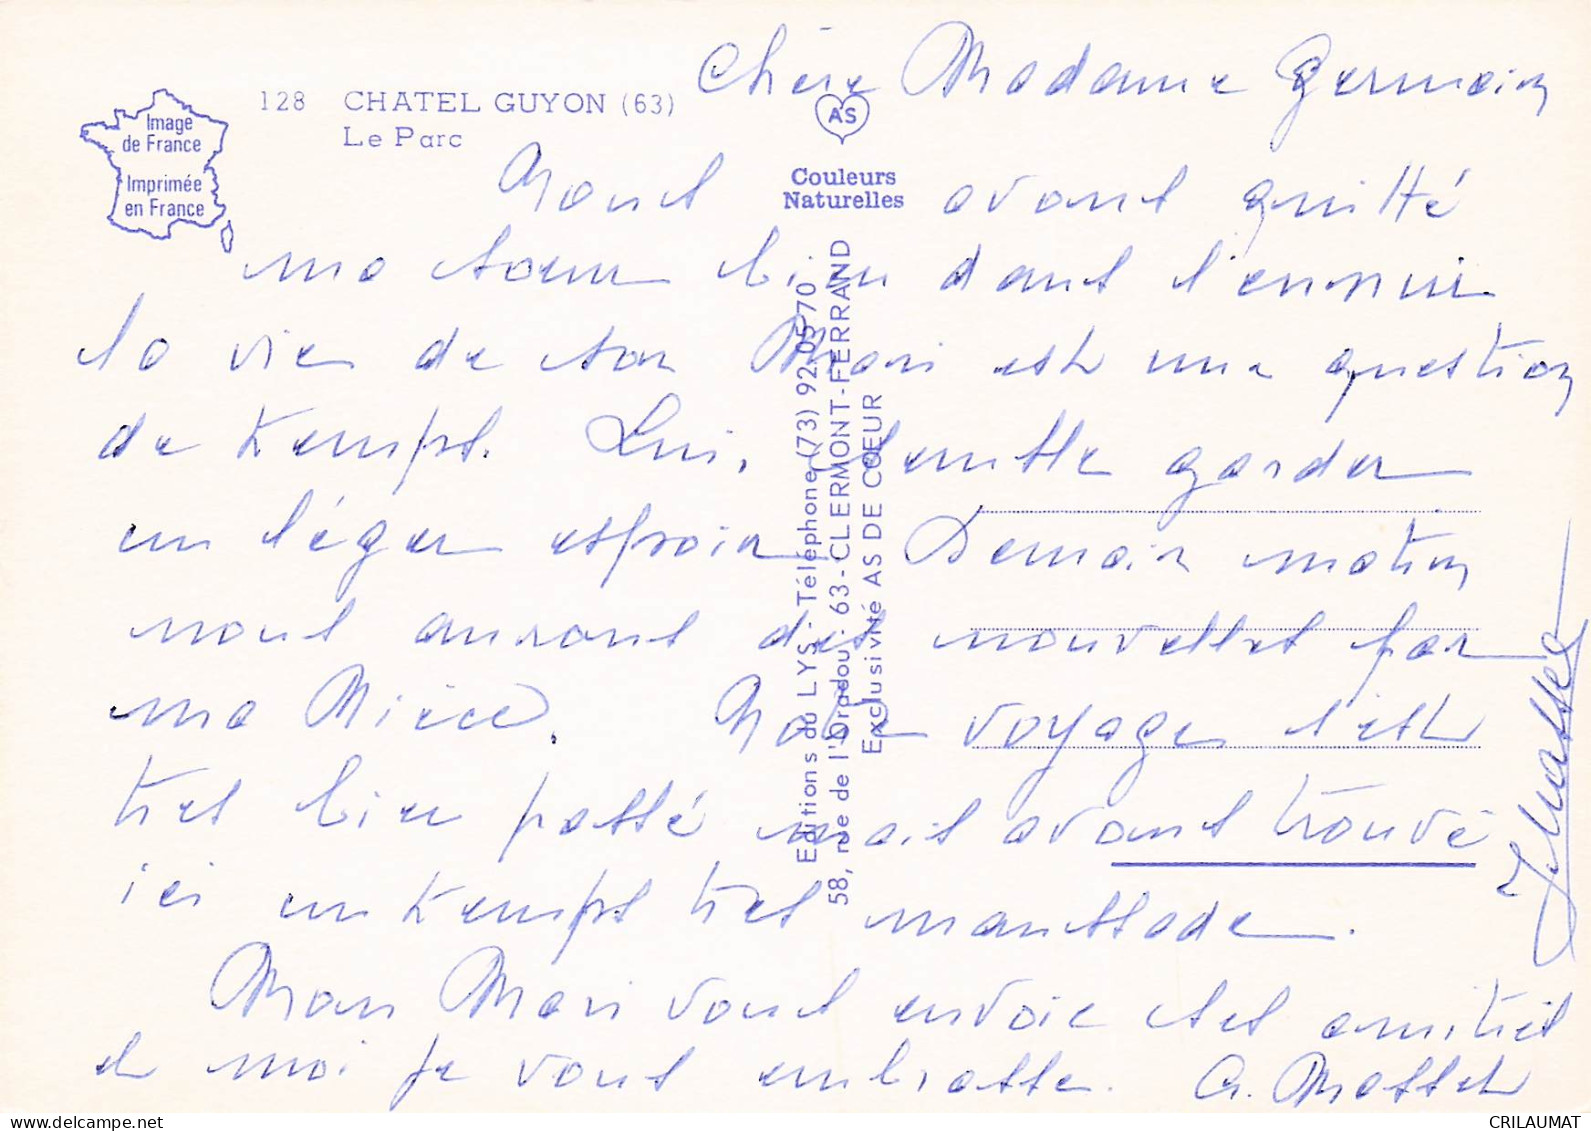 128 CHATEL GUYON (63)
Le Parc
Image
de France
Imprimée
en France
AS
Couleurs
Naturelles
Editions du LYS - Téléphone (73) 92.05.70
58, rue de l'Oradou - 63 - CLERMONT-FERRAND
Exclusivité AS DE CŒUR
Chère Madame Germain
Nous avons quitté
ma sœur bien dans l'ennui
la vie de son Mari est une question
de temps. Lui, semble garder
un léger espoir Demain matin
nous aurons des nouvelles par
ma Nièce. Notre voyage s'est
très bien passé mais avons trouvé
ici un temps très maussade.
Mon Mari vous envoie ses amitiés
et moi je vous embrasse.
CRILAUMAT